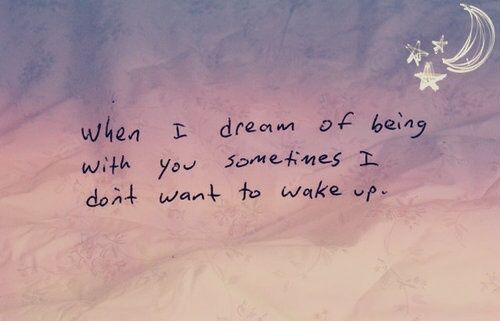 When I dream of being
with you sometimes I
don't want to wake up.